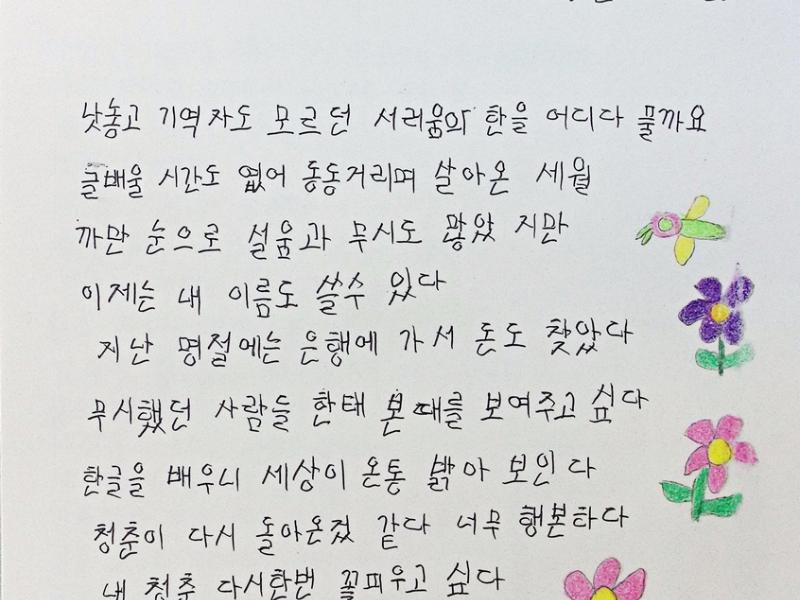 낫놓고 기역자도 모르던 서러움의 한을 어디다 풀까요
글배울 시간도 없어 동동거리며 살아온 세월
까만 눈으로 설움과 무시도 많았 지만
이제는 내 이름도 쓸수 있다
지난 명절에는 은행에 가서 돈도 찾았다
무시했던 사람들 한태 본때를 보여주고 싶다
한글을 배우니 세상이 온통 밝아 보인다
청춘이 다시 돌아온겄 같다 너무 행본하다
내 청춘 다시한번 꽃피우고 싶다